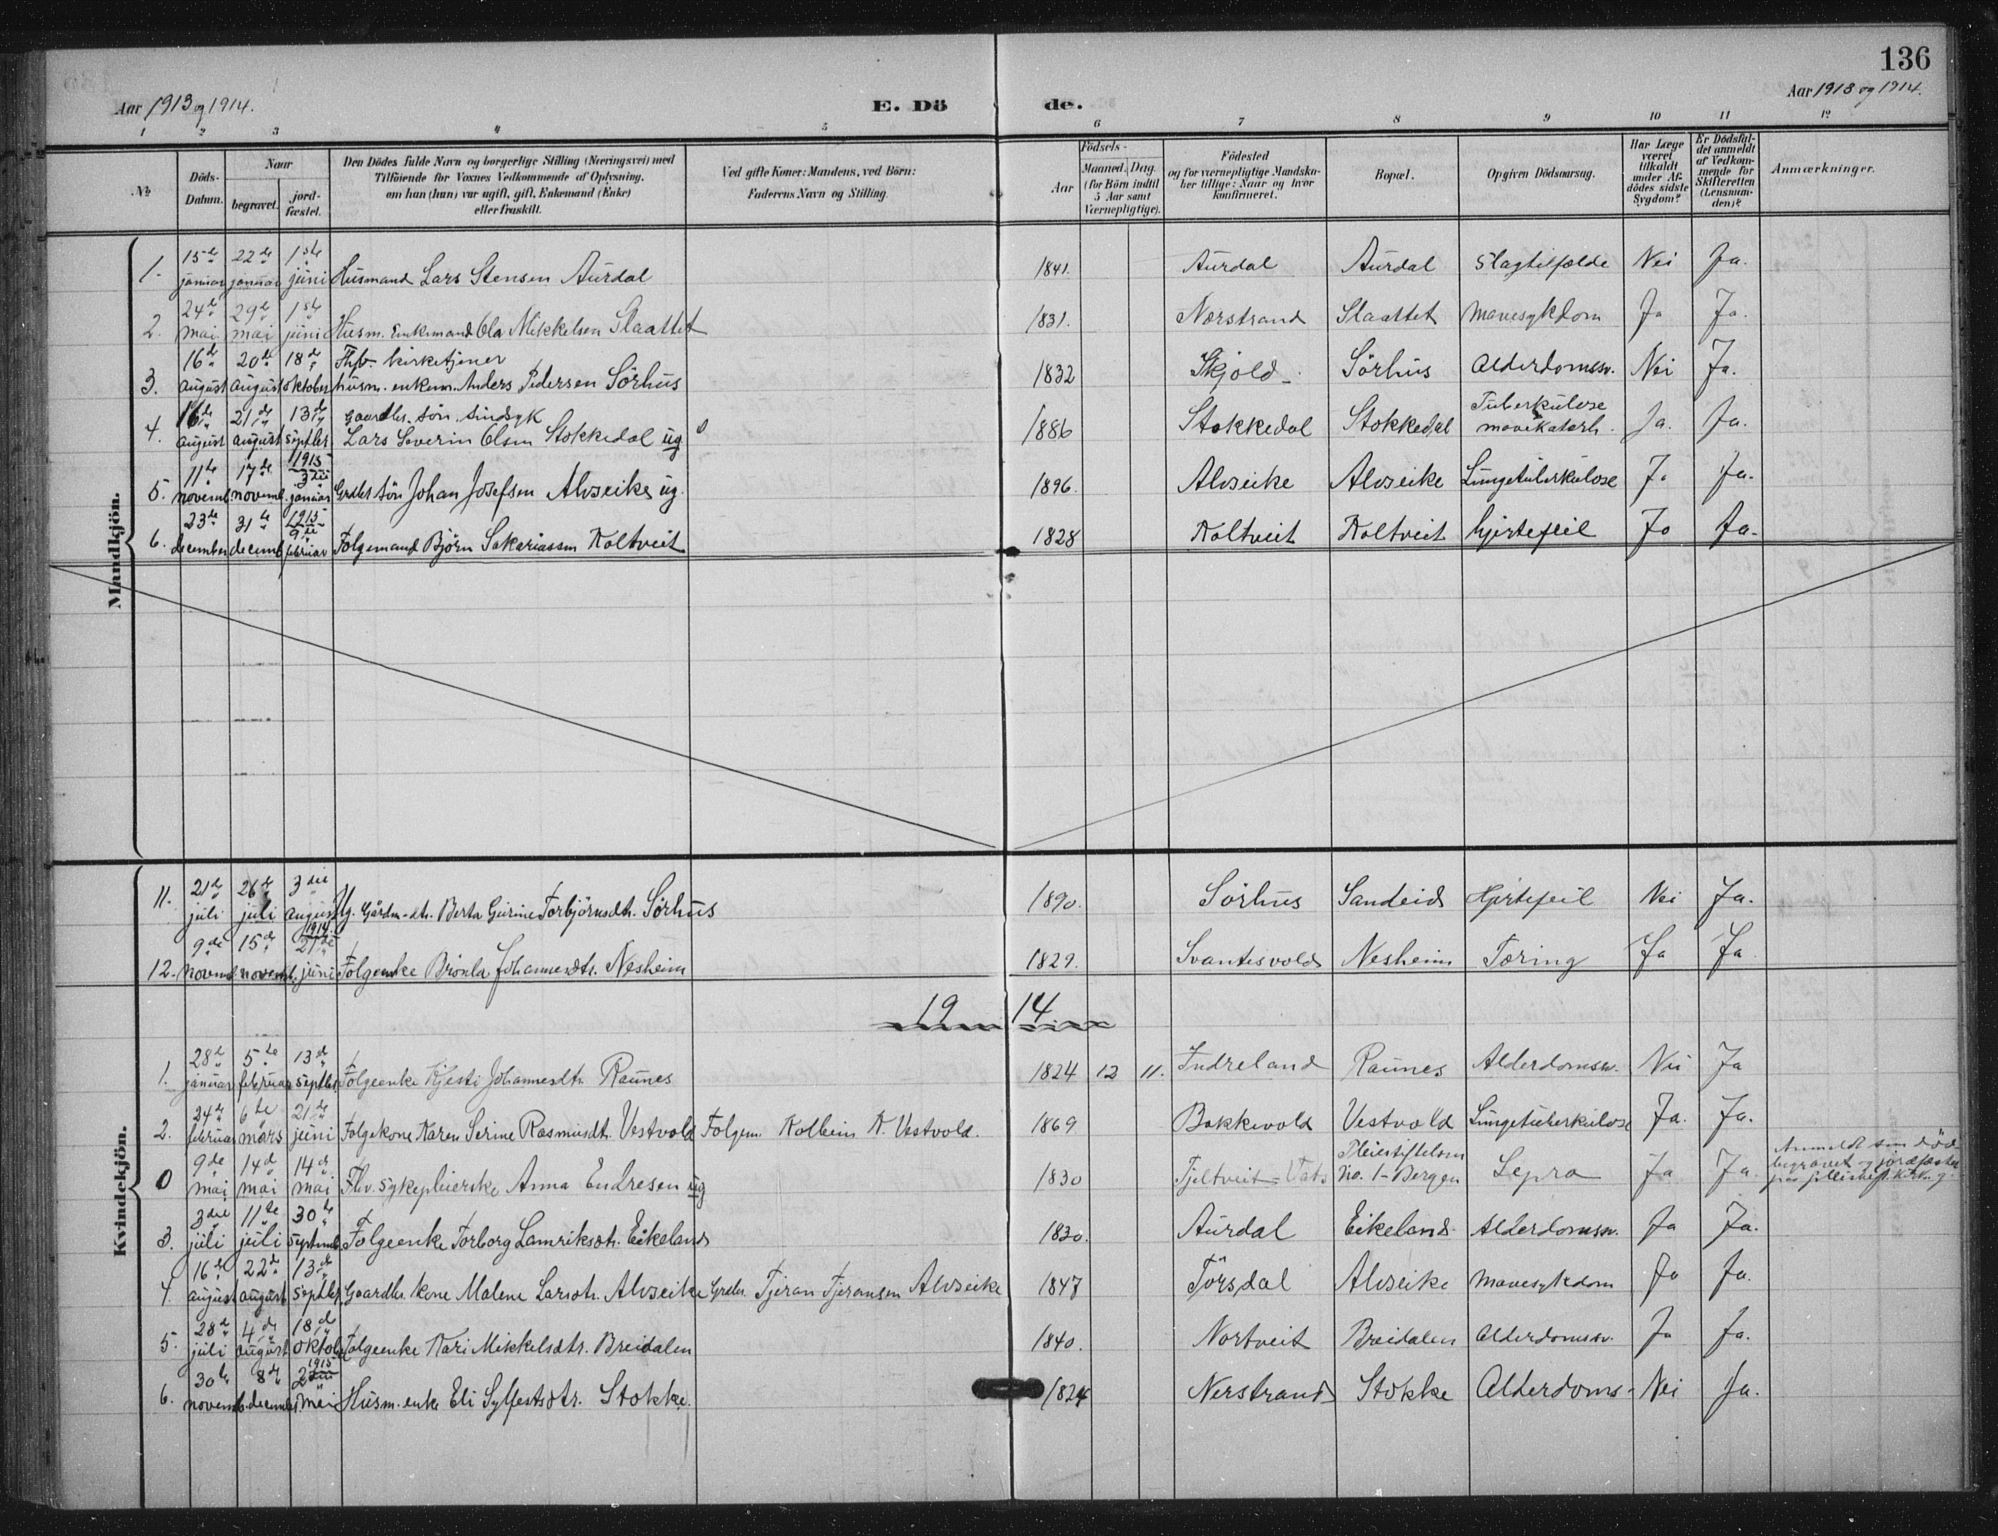 136
Aar 1913 og 1914.
E. Dö de.
Aar 1913 og 1914.
1 2 3 4 5 6 7 8 9 10 11 12
No.
Döds-Datum.
Naar
begravet.
jord-fæstet.
Den Dödes fulde Navn og borgerlige Stilling (Næringsvei) med
Tilföiende for Voxnes Vedkommende af Oplysning,
om han (hun) var ugift, gift, Enkemand (Enke)
eller fraskilt.
Ved gifte Koner: Mandens, ved Börn:
Faderens Navn og Stilling.
Födsels-
Aar
Maaned. Dag.
(for Börn indtil
5 Aar samt
Værnepligtige).
Födested
og for værnepligtige Mandskaber tillige: Naar og hvor
konfirmeret.
Bopæl.
Opgiven Dödsaarsag.
Har Læge
været
tilkaldt
under Afdödes sidste
Sygdom?
Er Dödsfaldet anmeldt
af Vedkommende for
Skifteretten
(Lensmanden)?
Anmærkninger.
Mandkjön.
1. 15de januar 22de januar 1ste juni Husmand Lars Stensen Aurdal 1841. Aurdal Aurdal Slagtilfælde Nei Ja.
2. 24de mai 29de mai 1ste juni Husm. Enkemand Ola Mikkelsen Slaattet 1831. Nerstrand Slaattet Mavesykdom Ja Ja.
3. 16de august 20de august 18de oktober Fhv. kirketjener husm. enkem. Anders Pedersen Sörhus 1832 Skjold Sörhus Alderdomssv. Nei Ja.
4. 16de august 21de august 13de septbr. Gaardbr. sön. sindsyk Lars Severin Olsen Stokkedal ug. 1886 Stokkedal Stokkedal Tuberkulose mavekatarh. Ja. Ja.
5. 11te novemb. 17de novemb. 1915 3die januar Grdbr sön Johan Josefsen Alvseike ug. 1896. Alvseike Alvseike Lungetuberkulose Ja Ja.
6. 23de december 31te decemb. 1915 9de februar Folgemand Björn Sakariassen Koltveit 1828 Koltveit Koltveit hjertefeil Ja Ja.
Kvindekjön.
11. 21de juli 26de juli 3die august Ug. Gårdm-dt. Berta Gurine Torbjörnsdt. Sörhus 1890. Sörhus Sandeid Hjertefeil Nei Ja.
12. 9de novemb. 15de novemb. 1914 21de juni Folgeenke Brönla Johannesdtr. Nesheim 1829. Svantesvold Nesheim Tæring Ja Ja
19 14
1. 28de januar 5te februar 13de septbr. Folgeenke Kjesti Johannesdtr. Raunes 1824 12 11. Indreland Raunes Alderdomssv. Nei Ja
2. 24de februar 6te mars 21de juni Folgekone Karen Serine Rasmusdt. Vestvold Folgem. Kolbein K. Vestvold. 1869 Bakkevold Vestvold Lungetuberkulose Ja. Ja.
0 9de mai 14de mai 14de mai Fhv. sykepleierske Anna Endresen ug 1830 Tjeltveit - Vats Pleiestiftelsen No. 1 - Bergen Lepra Ja Ja. Anmeldt som död begravet og jordfæstet paa
3. 3die juli 11te juli 30te septemb. Folgeenke Torborg Lamriksdtr. Eikeland 1830. Aurdal Eikeland. Alderdomssv. Ja Ja.
4. 16de august 22de august 13de septbr. Gaardbr. kone Malene Larsdtr. Alvseike Grdbr. Tjeran Tjeransen Alvseike 1847 Törsdal Alvseike Mavesykdom Ja Ja.
5. 28de juli 4de august 18de oktob. Folgeenke Kari Mikkelsdtr. Breidalen 1840. Nortveit Breidalen Alderdomssv. Ja Ja.
6. 30te novemb. 8de decemb. 1915 2den mai Husm. enke Eli Sylfestsdtr. Stokke. 1824 Nerstrand Stokke Alderdoms- Nei Ja.